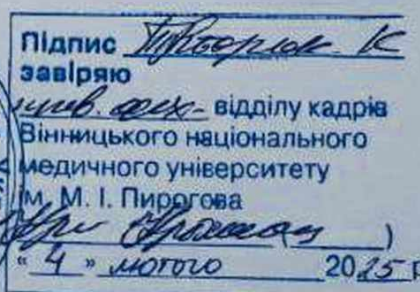 Підпис
завіряю
відділу кадрів
Вінницького національного
медичного університету
ім. М. І. Пирогова
( )
" 4 " лютого 2025 р